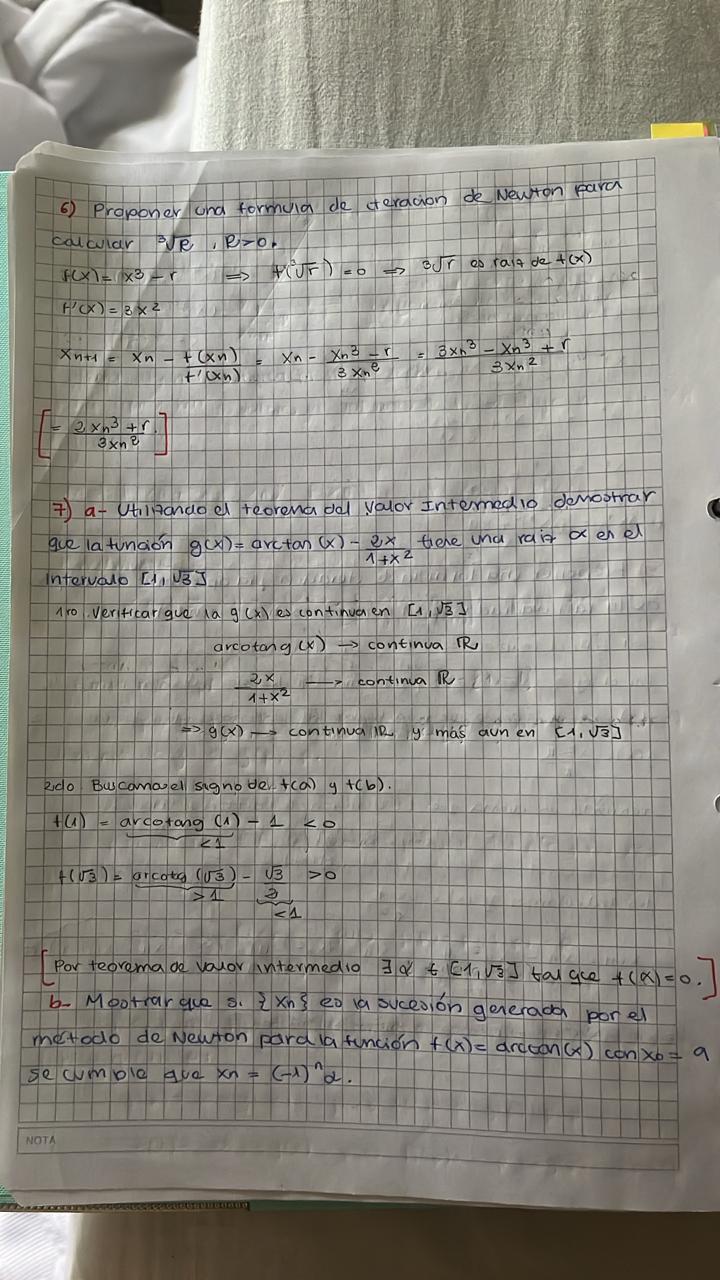 6) Proponer una formula de iteracion de Newton para
calcular ³√R , R>0.
f(x)= x³ - r ⟹ f(³√r) = 0 ⟹ ³√r es raiz de f(x)
f'(x) = 3x²
xn+1 = xn - f(xn)/f'(xn) = xn - (xn³ - r)/(3xn²) = (3xn³ - xn³ + r)/(3xn²)
[= (2xn³ + r)/(3xn²)]
7) a- Utilizando el teorema del Valor Intermedio demostrar
que la función g(x) = arctan(x) - 2x/(1+x²) tiene una raiz α en el
intervalo [1, √3]
1ro verificar que la g(x) es continua en [1, √3]
arcotang(x) → continua ℝ
2x/(1+x²) → continua ℝ
⇒ g(x) → continua ℝ y más aun en [1, √3]
2do Buscamos el signo de f(a) y f(b).
f(1) = arcotang (1) - 1 < 0
<1
f(√3) = arcotg (√3) - √3/2 > 0
>1
<1
[Por teorema de valor intermedio ∃ α ∈ [1, √3] tal que f(α) = 0.]
b- Mostrar que si {xn} es la sucesión generada por el
método de Newton para la función f(x) = arctan(x) con x0 = α
se cumple que xn = (-1)ⁿα.
NOTA